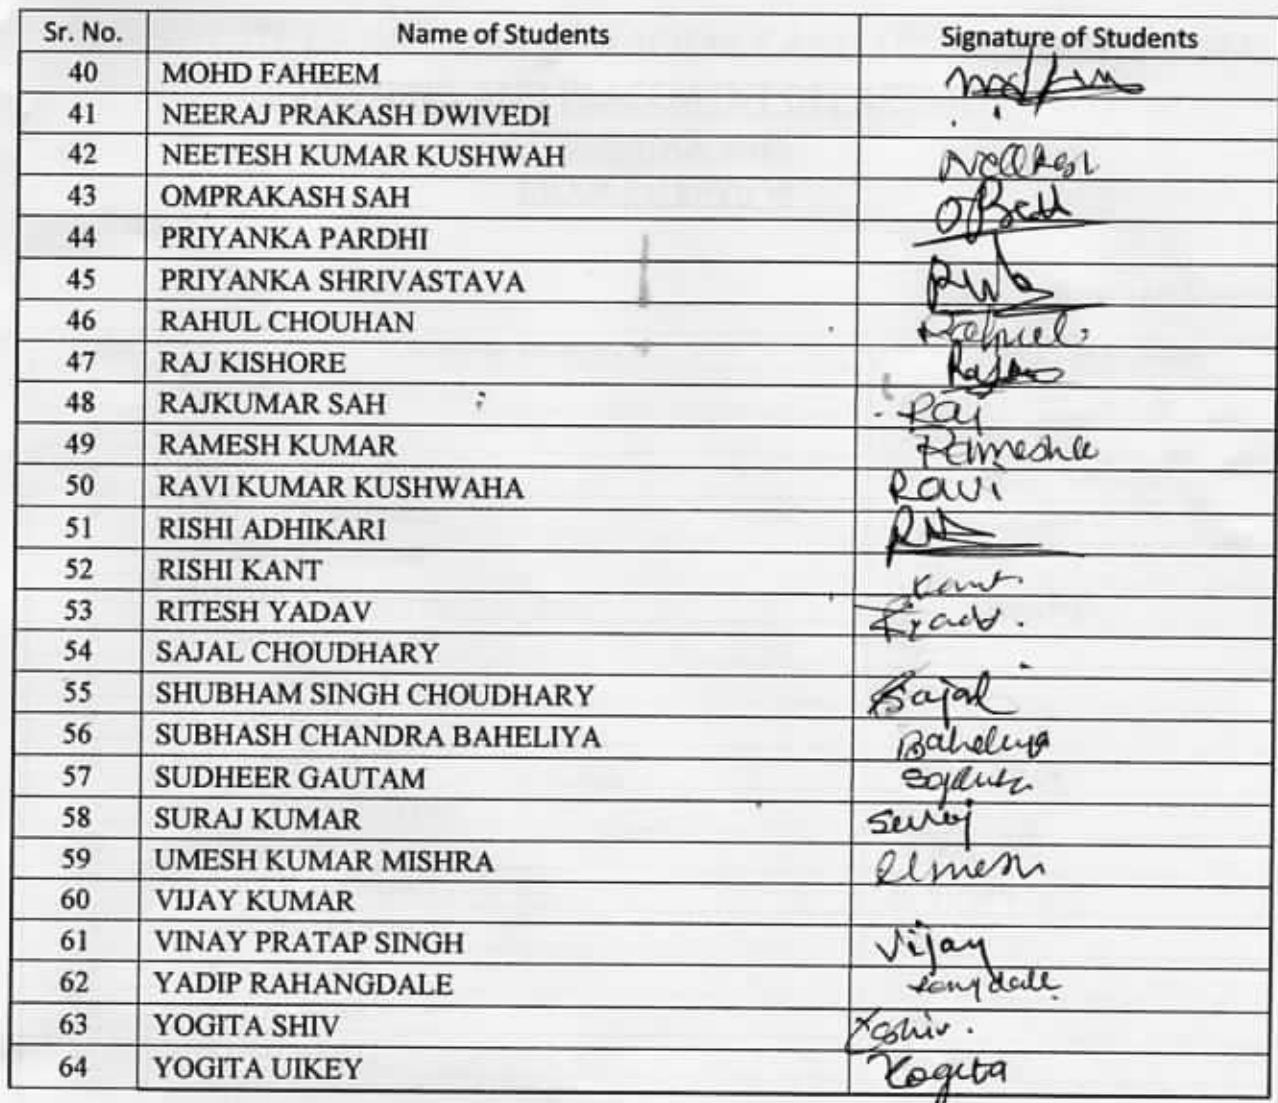 Sr. No. Name of Students Signature of Students
40 MOHD FAHEEM
41 NEERAJ PRAKASH DWIVEDI
42 NEETESH KUMAR KUSHWAH
43 OMPRAKASH SAH
44 PRIYANKA PARDHI
45 PRIYANKA SHRIVASTAVA
46 RAHUL CHOUHAN Rahul
47 RAJ KISHORE
48 RAJKUMAR SAH Raj
49 RAMESH KUMAR
50 RAVI KUMAR KUSHWAHA Ravi
51 RISHI ADHIKARI
52 RISHI KANT Kant
53 RITESH YADAV
54 SAJAL CHOUDHARY
55 SHUBHAM SINGH CHOUDHARY Sajal
56 SUBHASH CHANDRA BAHELIYA Baheliya
57 SUDHEER GAUTAM
58 SURAJ KUMAR Suraj
59 UMESH KUMAR MISHRA Umesh
60 VIJAY KUMAR
61 VINAY PRATAP SINGH Vijay
62 YADIP RAHANGDALE
63 YOGITA SHIV Yshiv.
64 YOGITA UIKEY Yogita